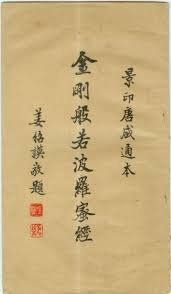 景印唐咸通本
金剛般若波羅蜜經
姜紹謨敬題